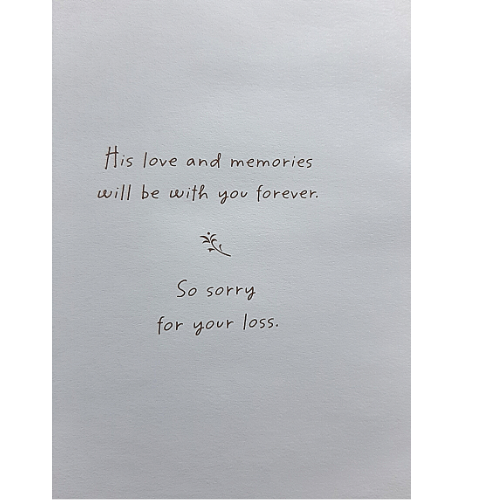 His love and memories
will be with you forever.
So sorry
for your loss.